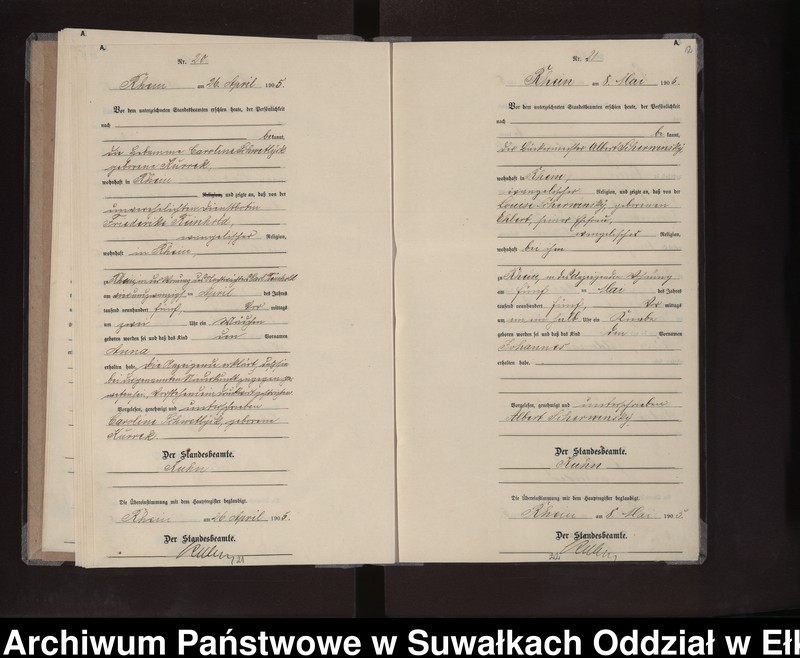 A.
A.
Nr. 20.
Rhein am 26. April 1905.
Vor dem unterzeichneten Standesbeamten erschien heute, der Persönlichkeit
nach
bekannt,
die Hebamme Caroline
geborene Kurrek,
wohnhaft in Rhein
Religion, und zeigte an, daß von der
unverehelichten Dienstbotin
Friederike Reinhold,
evangelischer Religion,
wohnhaft in Rhein,
zu Rhein, in der Wohnung des
am April des Jahres
tausend neunhundert fünf, Vor mittags
um zwei Uhr ein Mädchen
geboren worden sei und daß das Kind den Vornamen
Anna
erhalten habe. Die Anzeigende erklärt, daß sie
bei der genannten Niederkunft zugegen ge-
wesen sei.
Vorgelesen, genehmigt und unterschrieben
Caroline geborene
Kurrek.
Der Standesbeamte.
Kuhn
Die Übereinstimmung mit dem Hauptregister beglaubigt.
Rhein am 26. April 1905.
Der Standesbeamte.
Kuhn
A.
Nr. 21
Rhein am 8. Mai 1905.
Vor dem unterzeichneten Standesbeamten erschien heute, der Persönlichkeit
nach
bekannt,
der Bäckermeister Albert Scherwensky
wohnhaft in Rhein,
evangelischer Religion, und zeigte an, daß von der
Louise Scherwensky, geborenen
Ehlert, seiner Ehefrau,
evangelischer Religion,
wohnhaft bei ihm
zu Rhein, in der Wohnung
am fünf Mai des Jahres
tausend neunhundert fünf, Vor mittags
um ein halb Uhr ein Knabe
geboren worden sei und daß das Kind Vornamen
Johannes
erhalten habe.
Vorgelesen, genehmigt und unterschrieben
Albert Scherwensky.
Der Standesbeamte.
Kuhn
Die Übereinstimmung mit dem Hauptregister beglaubigt.
Rhein am 8. Mai 1905.
Der Standesbeamte.
Kuhn
Archiwum Państwowe w Suwałkach Oddział w Ełk